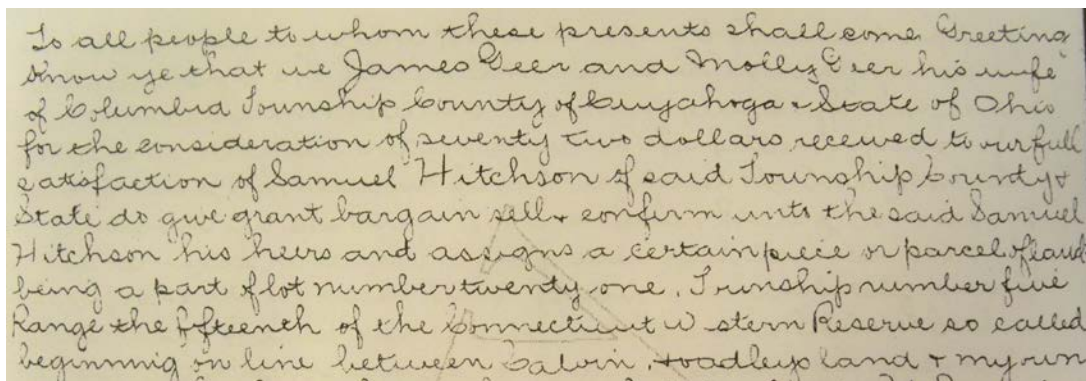 To all people to whom these presents shall come Greeting
Know ye that we James Geer and Molly Geer his wife
of Columbia Township County of Cuyahoga & State of Ohio
for the consideration of seventy two dollars received to our full
satisfaction of Samuel Hitchson of said Township County &
State do give grant bargain sell & confirm unto the said Samuel
Hitchson his heirs and assigns a certain piece or parcel of land
being a part of lot number twenty one, Township number five
Range the fifteenth of the Connecticut W stern Reserve so called
beginning on line between Calvin land & my own